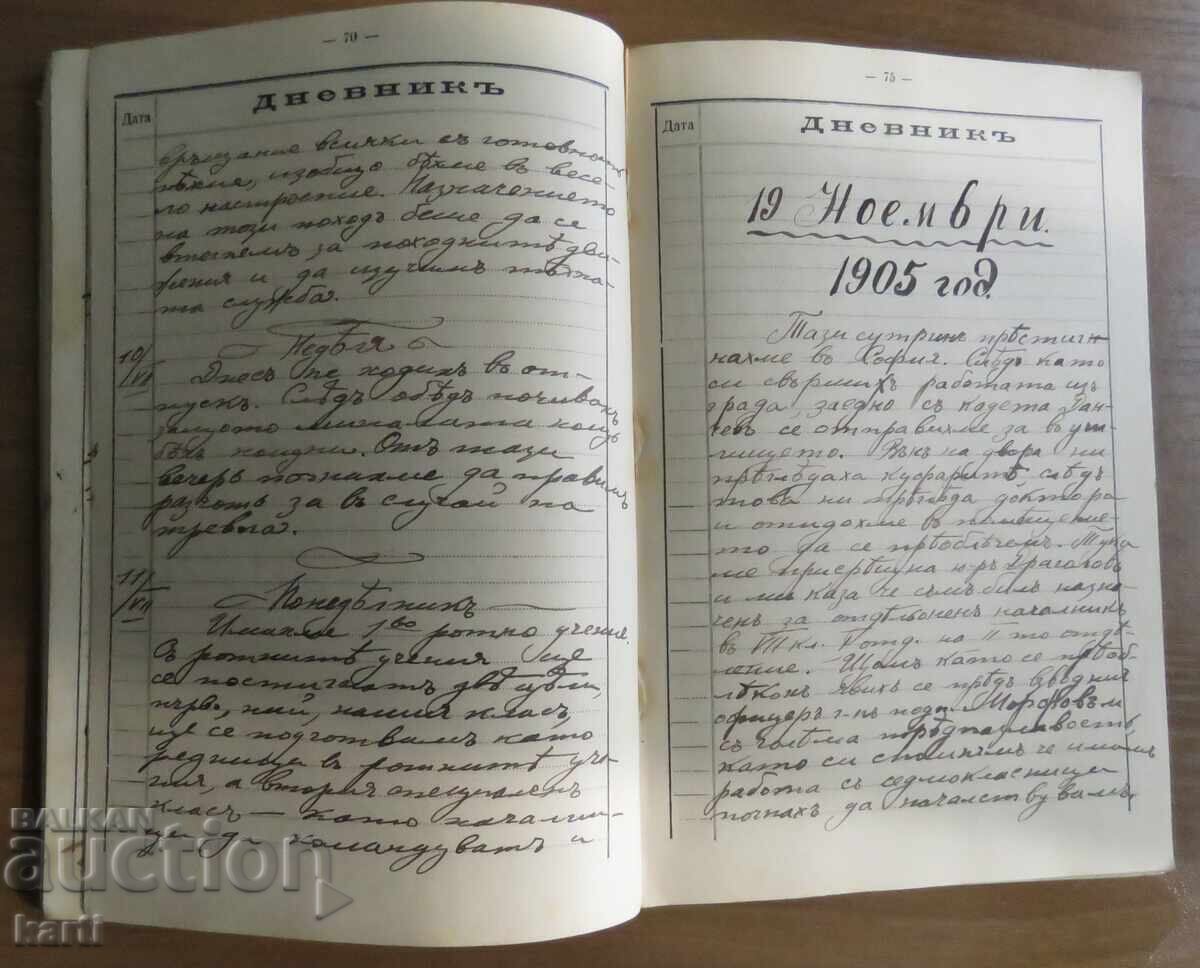 — 70 —
Дата
ДНЕВНИКЪ
връщание всички съ готовность
пѣхме, изобщо бѣхме въ весе-
ло настроение. Назначението
на този походъ беше да се
втегнемъ за походнитѣ дви-
жения и да изучимъ
та служба.
Недѣля
10/VI
Днесъ не ходих въ от-
пускъ. Слѣдъ обѣдъ почивахъ
защото миналата нощь
бѣхъ Отъ тази
вечерь почнахме да правимъ
разчотъ за въ случай на
тревога.
11/VII
Понедѣлникъ
Имахме 1во ротно учение.
Съ ротнитѣ учения ще
се постигнатъ двѣ цѣли,
първо, ний, нашия класъ,
ще се подготвимъ като
редници въ ротнитѣ уче-
ния, а втория специаленъ
класъ — като началници
да командуватъ и
— 75 —
Дата
ДНЕВНИКЪ
19 Ноември.
1905 год.
Тази сутринь прѣстиг-
нахме въ София. Слѣдъ като
си свършихъ работата изъ
града, заедно съ кадета Ган-
чевъ се отправихме за въ учи-
лището. Вънъ на двора ни
прѣгледаха куфаритѣ слѣдъ
това ни прѣгледа доктора
и отидохме въ помѣщение-
то да се прѣоблѣчемъ. Тука
ме ю-ръ Драголовъ
и ми каза че съмъ билъ назна-
ченъ за отдѣлоненъ началникъ
въ VII кл. I отд. на II то отдѣ-
ление. Щомъ като се прѣоб-
лѣкохъ явихъ се прѣдъ взводния
офицеръ г-нъ подп. Морфовъ и
съ голѣма прѣдпазливость,
като си спомнихъ че имамъ
работа съ седмокласници
почнахъ да началствувамъ.
BALKAN
auction
karti